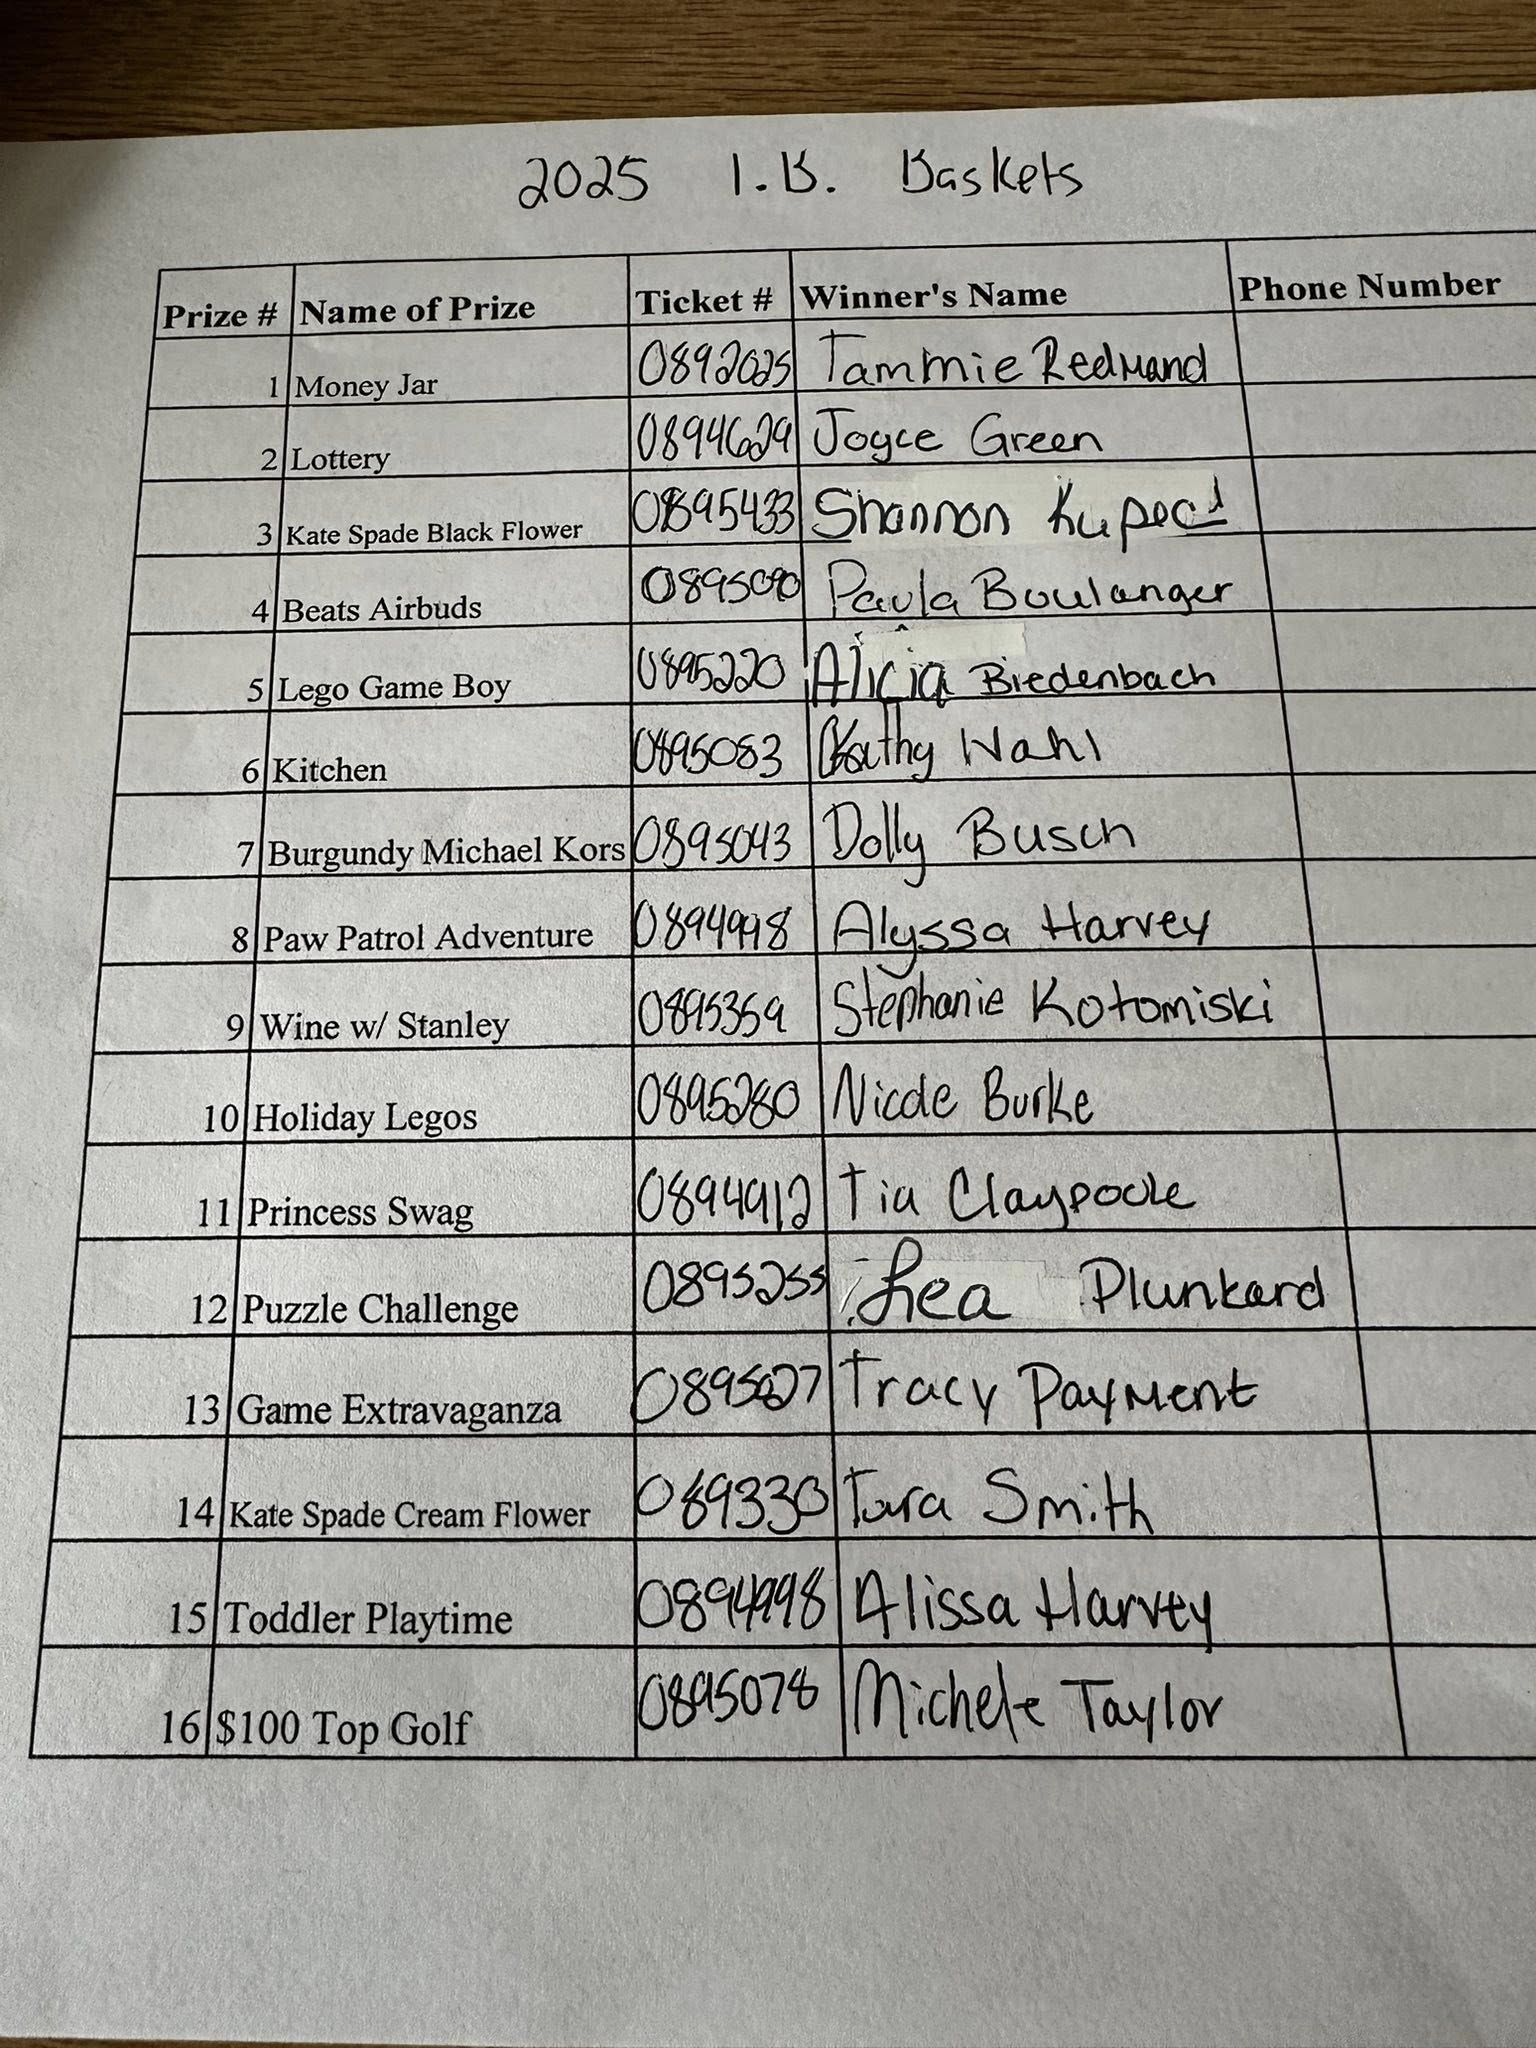 2025 I.B. Baskets
Prize # Name of Prize Ticket # Winner's Name Phone Number
1 Money Jar 0892025 Tammie Redmand
2 Lottery 0894629 Joyce Green
3 Kate Spade Black Flower 0895433 Shannon
4 Beats Airbuds Paula Boulanger
5 Lego Game Boy 0895220 Alicia Biedenbach
6 Kitchen 0895083 Kathy Wahl
7 Burgundy Michael Kors 0895043 Dolly Busch
8 Paw Patrol Adventure 0894998 Alyssa Harvey
9 Wine w/ Stanley 0895359 Stephanie Kotomiski
10 Holiday Legos 0895280 Nicole Burke
11 Princess Swag 0894912 Tia Claypoole
12 Puzzle Challenge 0895255 Lea Plunkard
13 Game Extravaganza Tracy Payment
14 Kate Spade Cream Flower 089330 Tara Smith
15 Toddler Playtime 0894998 Alissa Harvey
16 $100 Top Golf 0895078 Michele Taylor